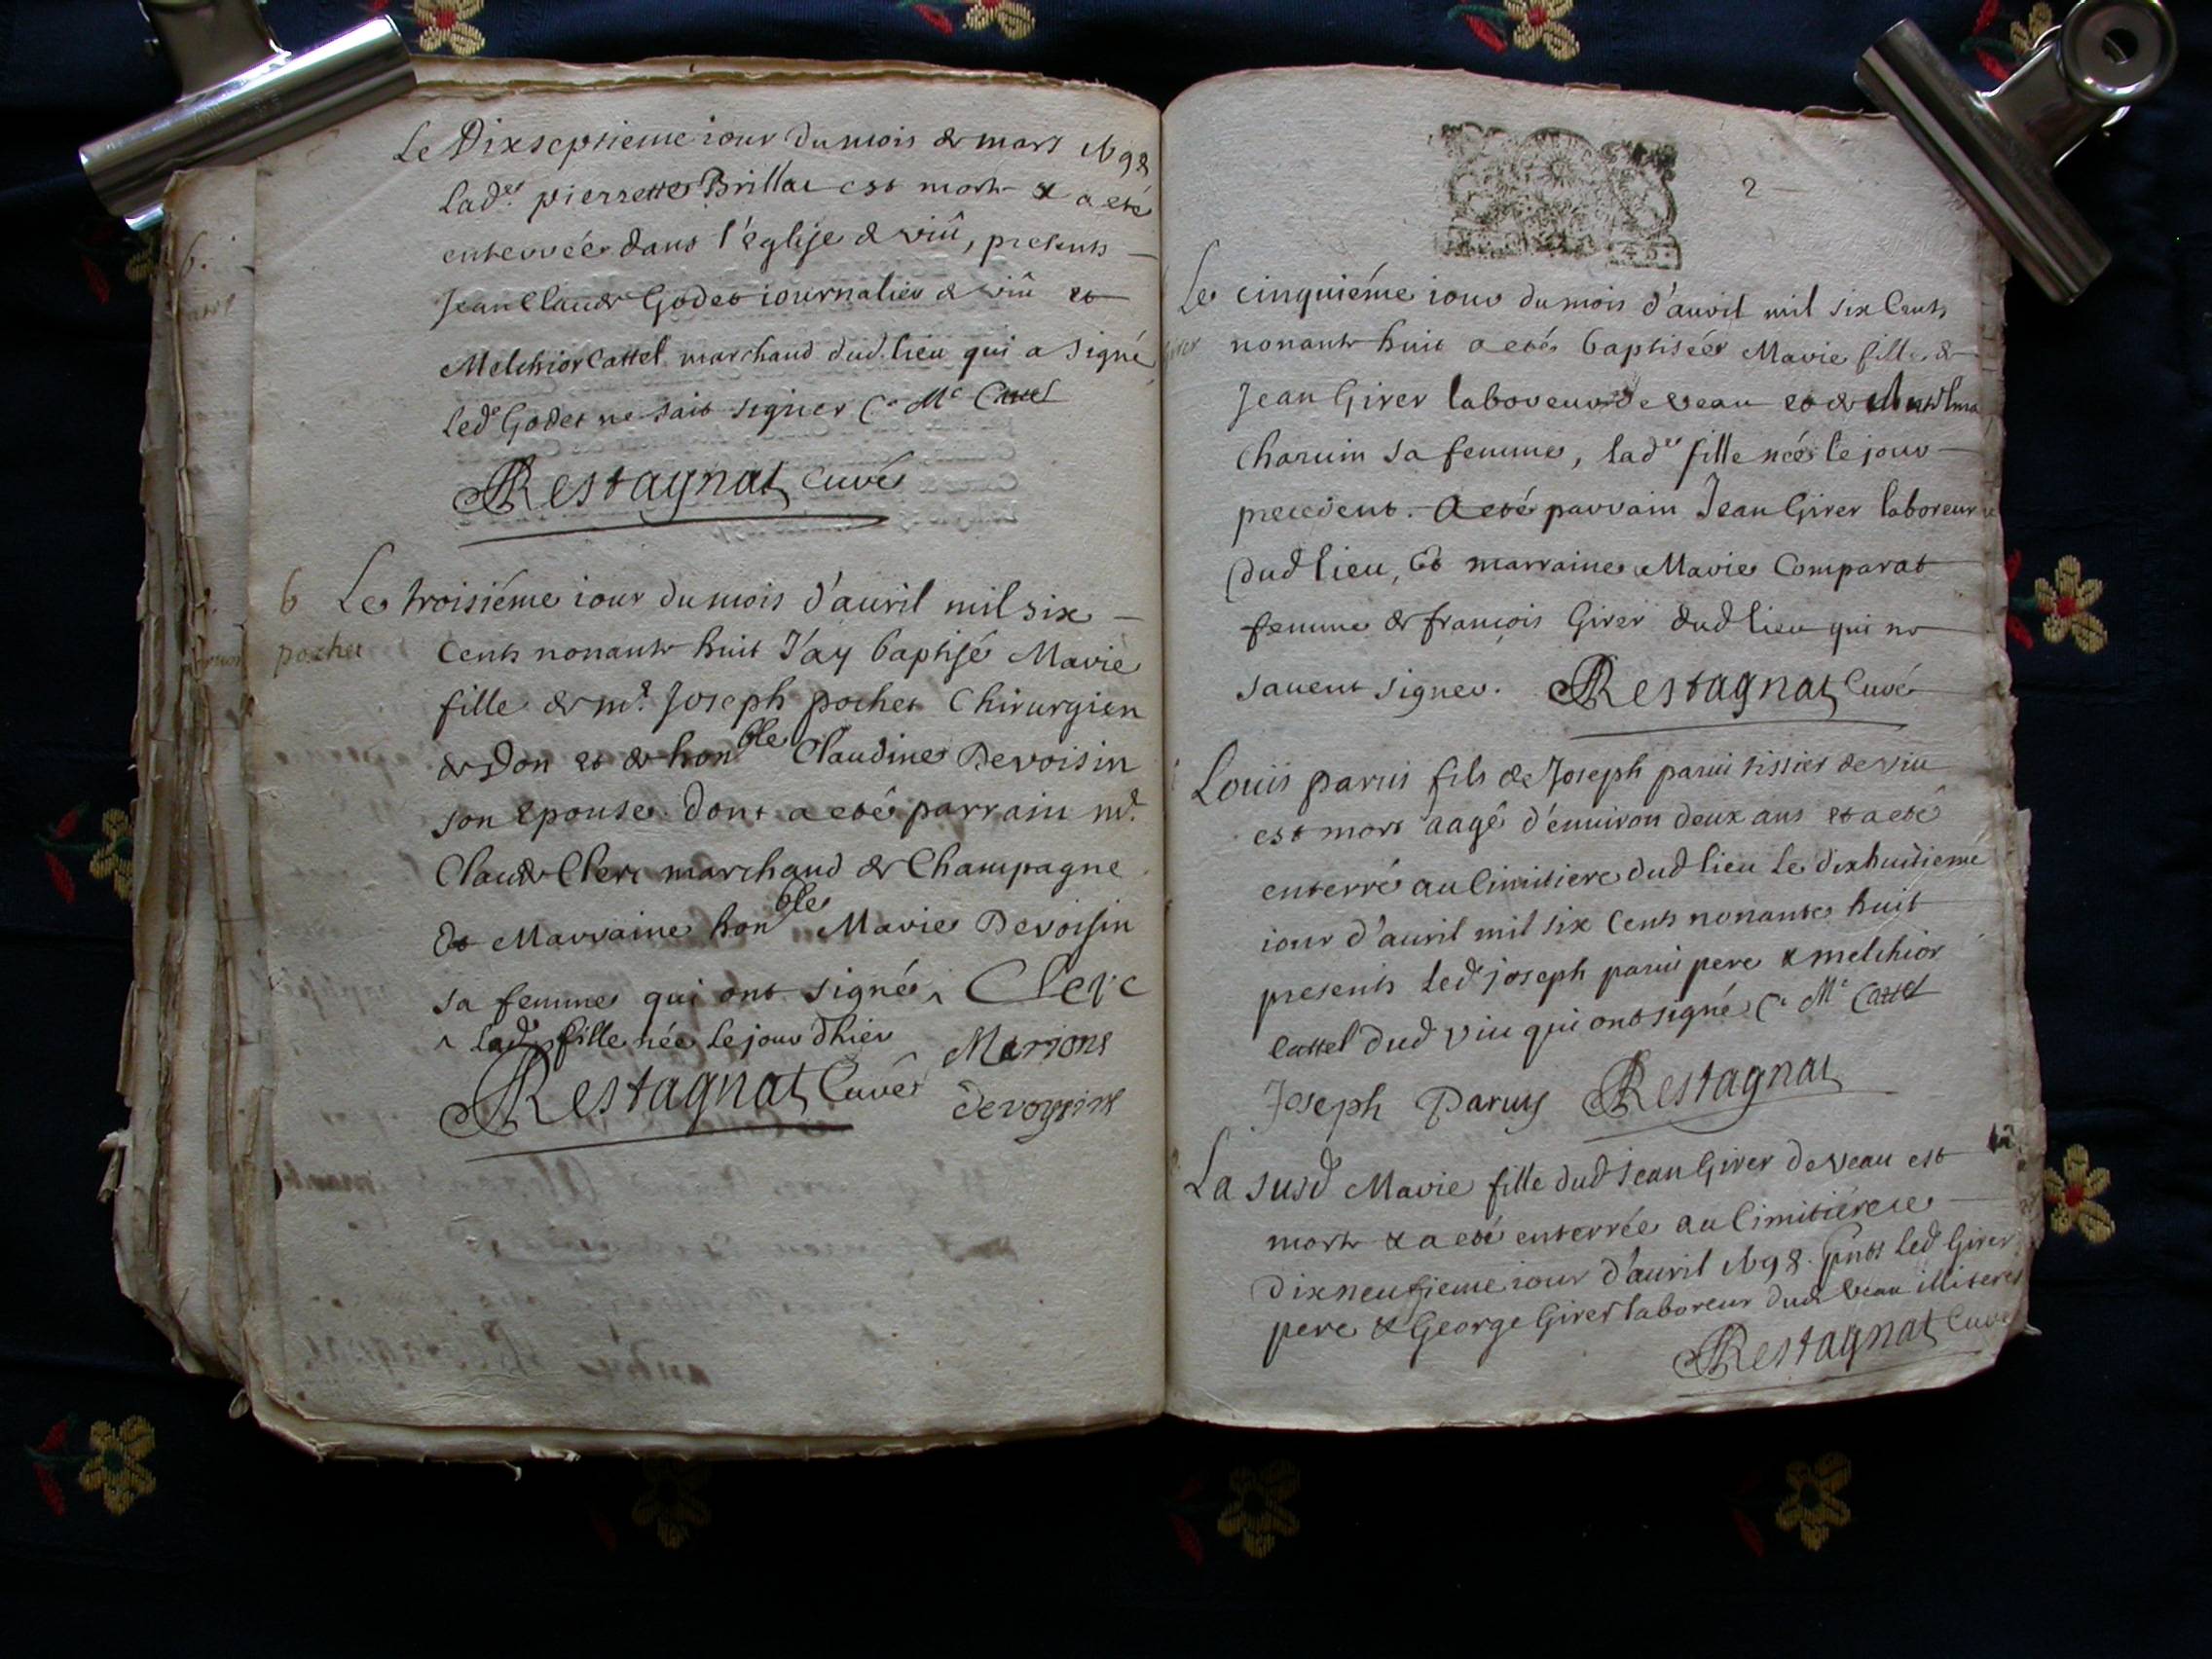 Le Dixseptieme iour du mois de mars 1698
lad.e pierrette Brillat est morte & a eté
enterrée dans l'églìse de viû, presents
Jean Claude Godet iournalier de viû et
Melchior Cattel marchand dud. lieu qui a signé
led. Godet ne sait signer C. Mr Cattel
Restagnat Curé
6 Le troisiéme iour du mois d'auril mil six
pochet Cents nonante huit J'ay baptisé Marie
fille de mr. Joseph pochet Chirurgien
de Don et de honble Claudine Devoisin
son epouse. dont a eté parrain mr.
Claude Clerc marchand de Champagne
Et Marraine honble Marie Devoisin
sa femme qui ont signé ^ Clerc
^ lad. fille née le jour d'hier Marione
Restagnat Curé devoysine
2
Le cinquiéme iour du mois d'auril mil six Cents
nonante huit a eté baptisée Marie fille de
Jean Girer laboureur de veau et de
Charuin sa femme, lad.e fille née le jour
precedent. A eté parrain Jean Girer laboreur
dud lieu, Et marraine Marie Comparat
femme de françois Girer dud lieu qui ne
sauent signer. Restagnat Curé
Louis paruis fils de Joseph parui tissier de viu
est mort aagê d'enuiron deux ans et a eté
enterré au Cimitiere dud lieu Le dixhuitieme
iour d'auril mil six Cents nonante huit
presents led joseph parui pere & melchior
Cattel dud viu qui ont signé C. Mr Cattel
Joseph Paruy Restagnat
La susd Marie fille dud Jean Girer de veau est
morte & a eté enterrée au Cimitiére le
dixneufieme iour d'auril 1698. pnts led Girer
pere & George Girer laboreur dud veau illiteres
Restagnat Curé